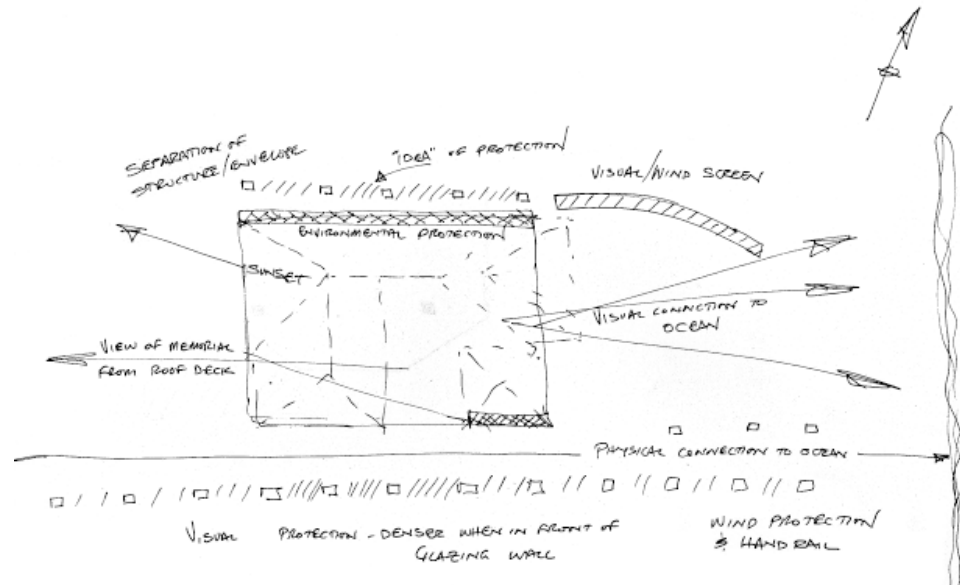 SEPARATION OF
STRUCTURE/ENVELOPE
"IDEA" OF PROTECTION
VISUAL/WIND SCREEN
ENVIRONMENTAL PROTECTION
SUNSET
VISUAL CONNECTION TO
OCEAN
VIEW OF MEMORIAL
FROM ROOF DECK
PHYSICAL CONNECTION TO OCEAN
VISUAL PROTECTION - DENSER WHEN IN FRONT OF
GLAZING WALL
WIND PROTECTION
& HANDRAIL